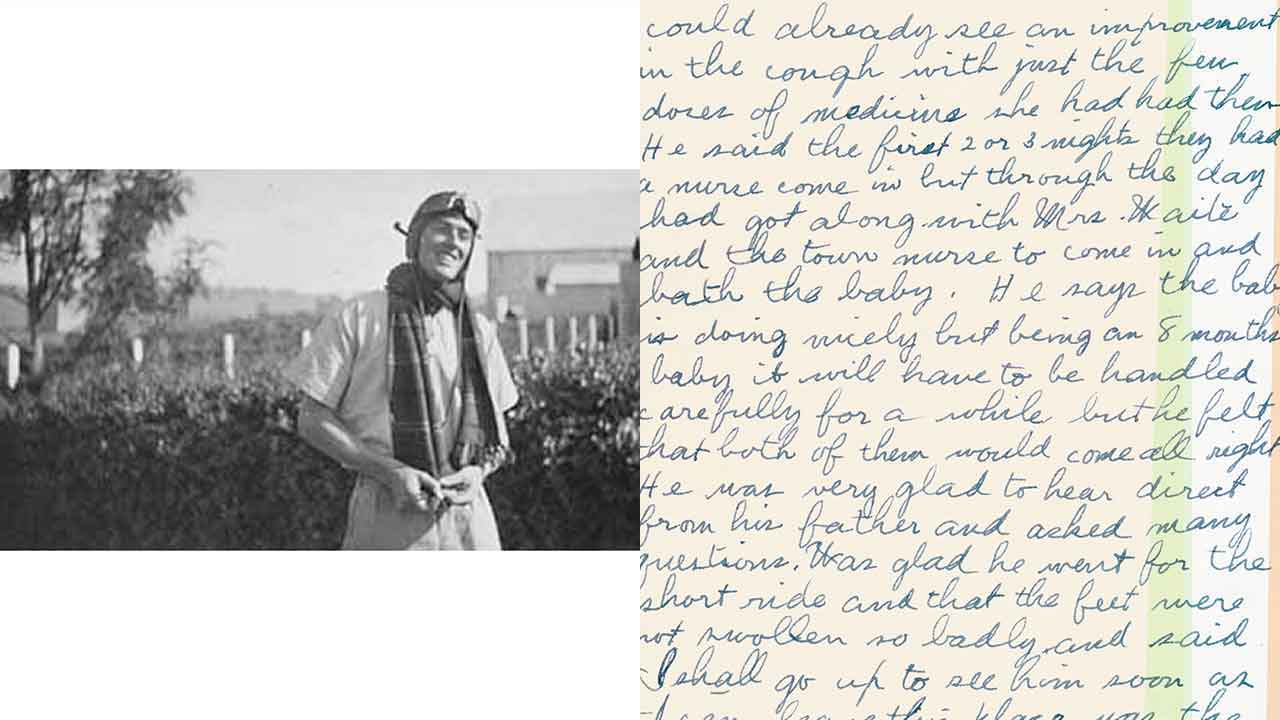 could already see an improvement
in the cough with just the few
doses of medicine she had had then
He said the first 2 or 3 nights they had
a nurse come in but through the day
had got along with Mrs. Waite
and the town nurse to come in and
bath the baby. He says the bab
is doing nicely but being an 8 months
baby it will have to be handled
carefully for a while but he felt
that both of them would come all right
He was very glad to hear direct
from his father and asked many
questions. Was glad he went for the
short ride and that the feet were
not swollen so badly and said
I shall go up to see him soon as